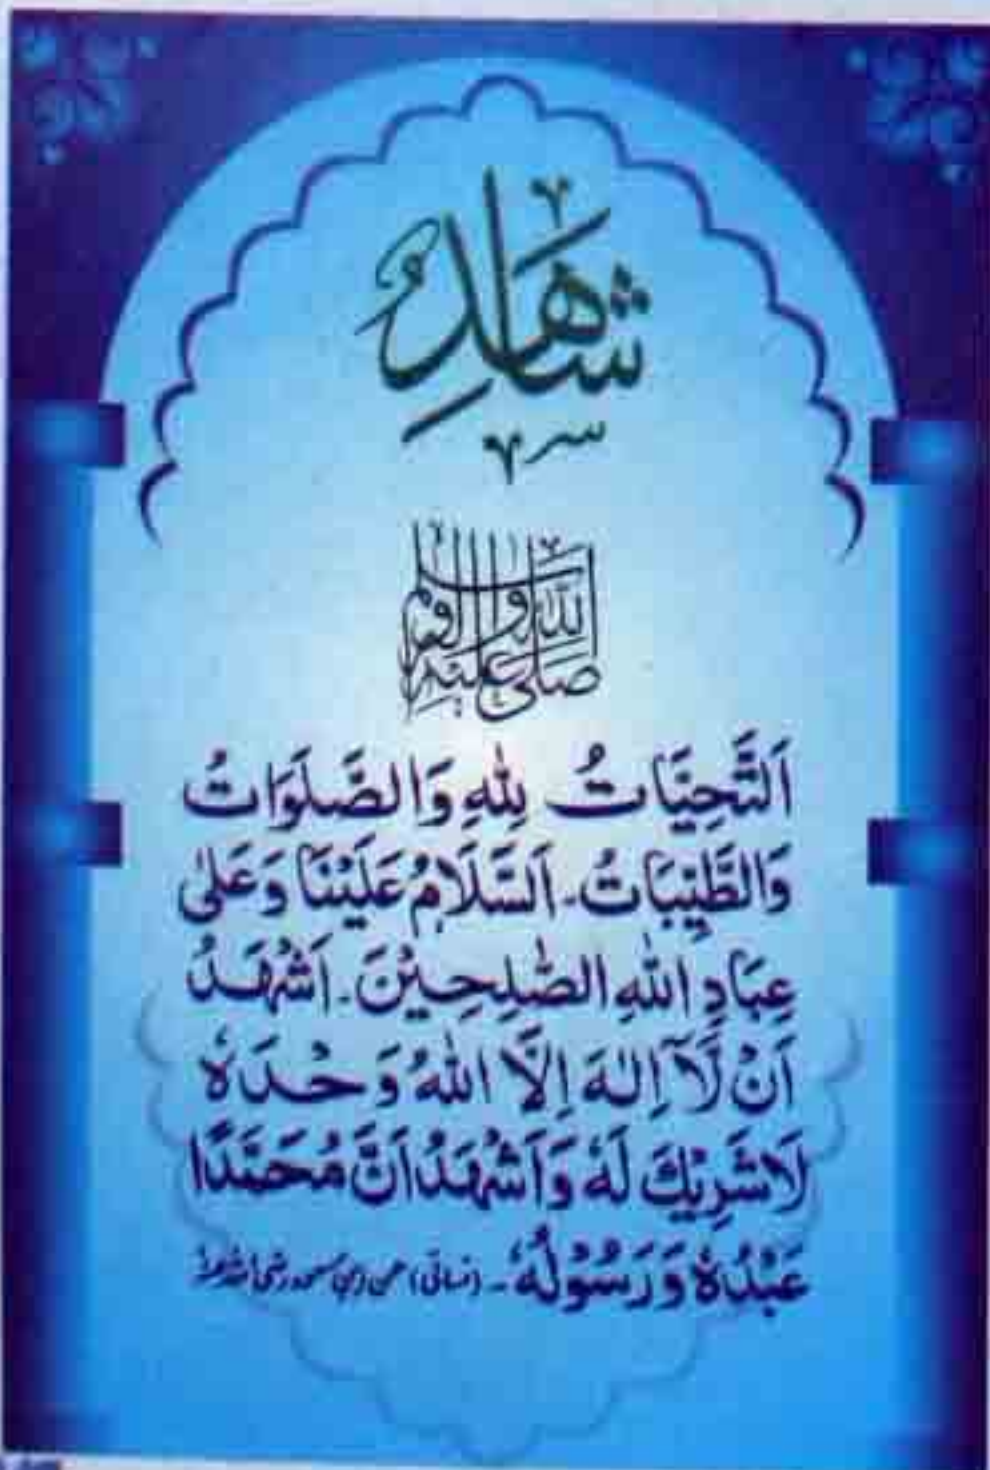 شَاهِدٌ
صَلَّى اللهُ عَلَيْهِ وَآلِهِ وَسَلَّم
اَلتَّحِيَّاتُ لِلّٰهِ وَالصَّلَوَاتُ
وَالطَّيِّبَاتُ۔ اَلسَّلَامُ عَلَيْنَا وَعَلٰى
عِبَادِ اللهِ الصّٰلِحِيْنَ۔ اَشْهَدُ
اَنْ لَّآ اِلٰهَ اِلَّا اللهُ وَحْدَهٗ
لَاشَرِيْكَ لَهٗ وَاَشْهَدُ اَنَّ مُحَمَّدًا
عَبْدُهٗ وَرَسُوْلُهٗ۔ (نسائی) عن ابن مسعود رضی اللہ عنہ